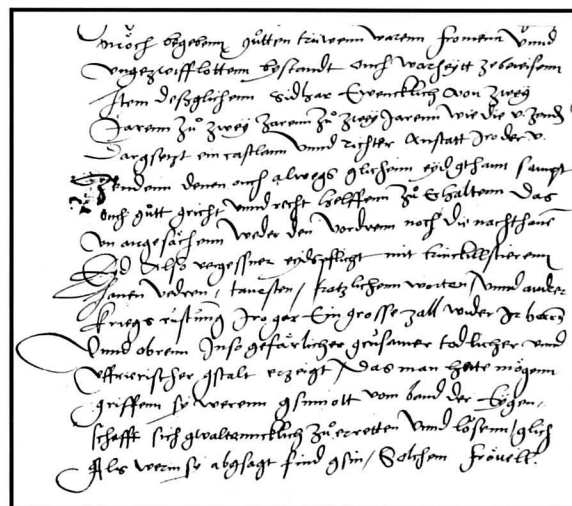 möch begebenn gůtten trüwenn warenn fromenn vnnd
vngezwifflottenn bystandt ouch warheytt zebewisenn
Item deßglichenn sidhar Ewencklich von zwey
Jarenn zů zwey Jarenn zů zwey Jarenn wie die v. zend
dargsetzt ein castlann vnnd richter anstatt Iro der v.
zendenn denen ouch alwegs glichenn eyd gthann sampt
ouch gůtt gricht vnnd recht helffenn zů Erhaltenn das
vn angesächenn weder den vordrenn noch die nachthane
Eid Also vergessner eydspflicht mit
hanen vedren / / kratzlichenn worten / vnnd ander
kriegs rüstůng Iro gar Ein grosse zall wider Ir herr
vnnd obrem Inso gefärlicher grüsamer todlicher vnd
vffrürischer gstalt erzeigt / das man hette mögenn
griffenn sy werenn gsinnott vom band der Eygen,
schafft sich gwaltencklich zů erretten vnnd lösenn / glich
Als wenn sy abgsagt find gsin / Solchenn fräuell.